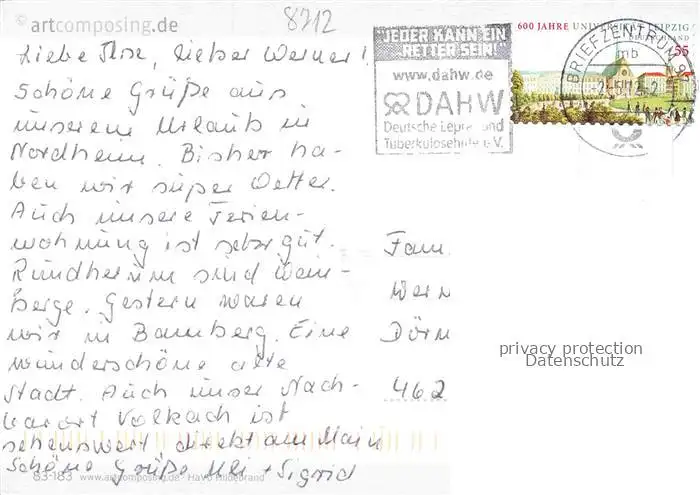 © artcomposing.de
8712
Liebe Ilse, lieber Werner!
Schöne Grüße aus
unserem Urlaub in
Nordheim. Bisher ha-
ben wir super Wetter.
Auch unsere Ferien-
wohnung ist sehr gut.
Rundherum sind Wein-
berge. Gestern waren
wir in Bamberg. Eine
wunderschöne alte
Stadt. Auch unser Nach-
barort Volkach ist
sehenswert direkt am Main
Schöne Grüße Uli + Sigrid
83-183 www.artcomposing.de HaVo Hildebrand
"JEDER KANN EIN
RETTER SEIN!"
www.dahw.de
DAHW
Deutsche Lepra- und
Tuberkulosehilfe e.V.
600 JAHRE UNIVERSITÄT LEIPZIG
DEUTSCHLAND
55
BRIEFZENTRUM
mb
Fam.
Wern
Dörn
462
privacy protection
Datenschutz